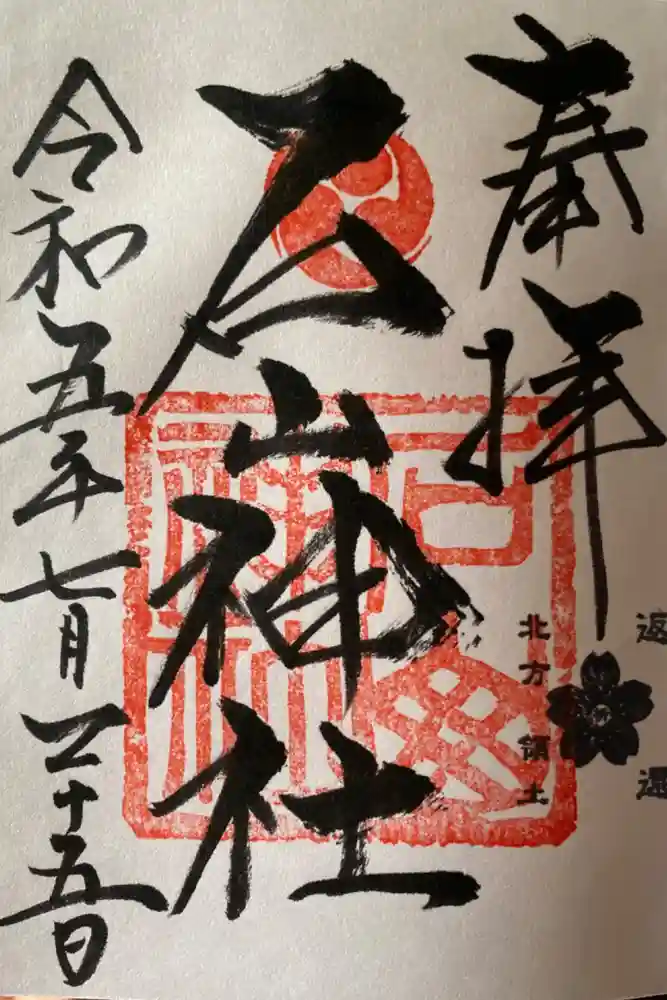 奉拝
返
北方領土
石山神社
令和五年七月二十五日